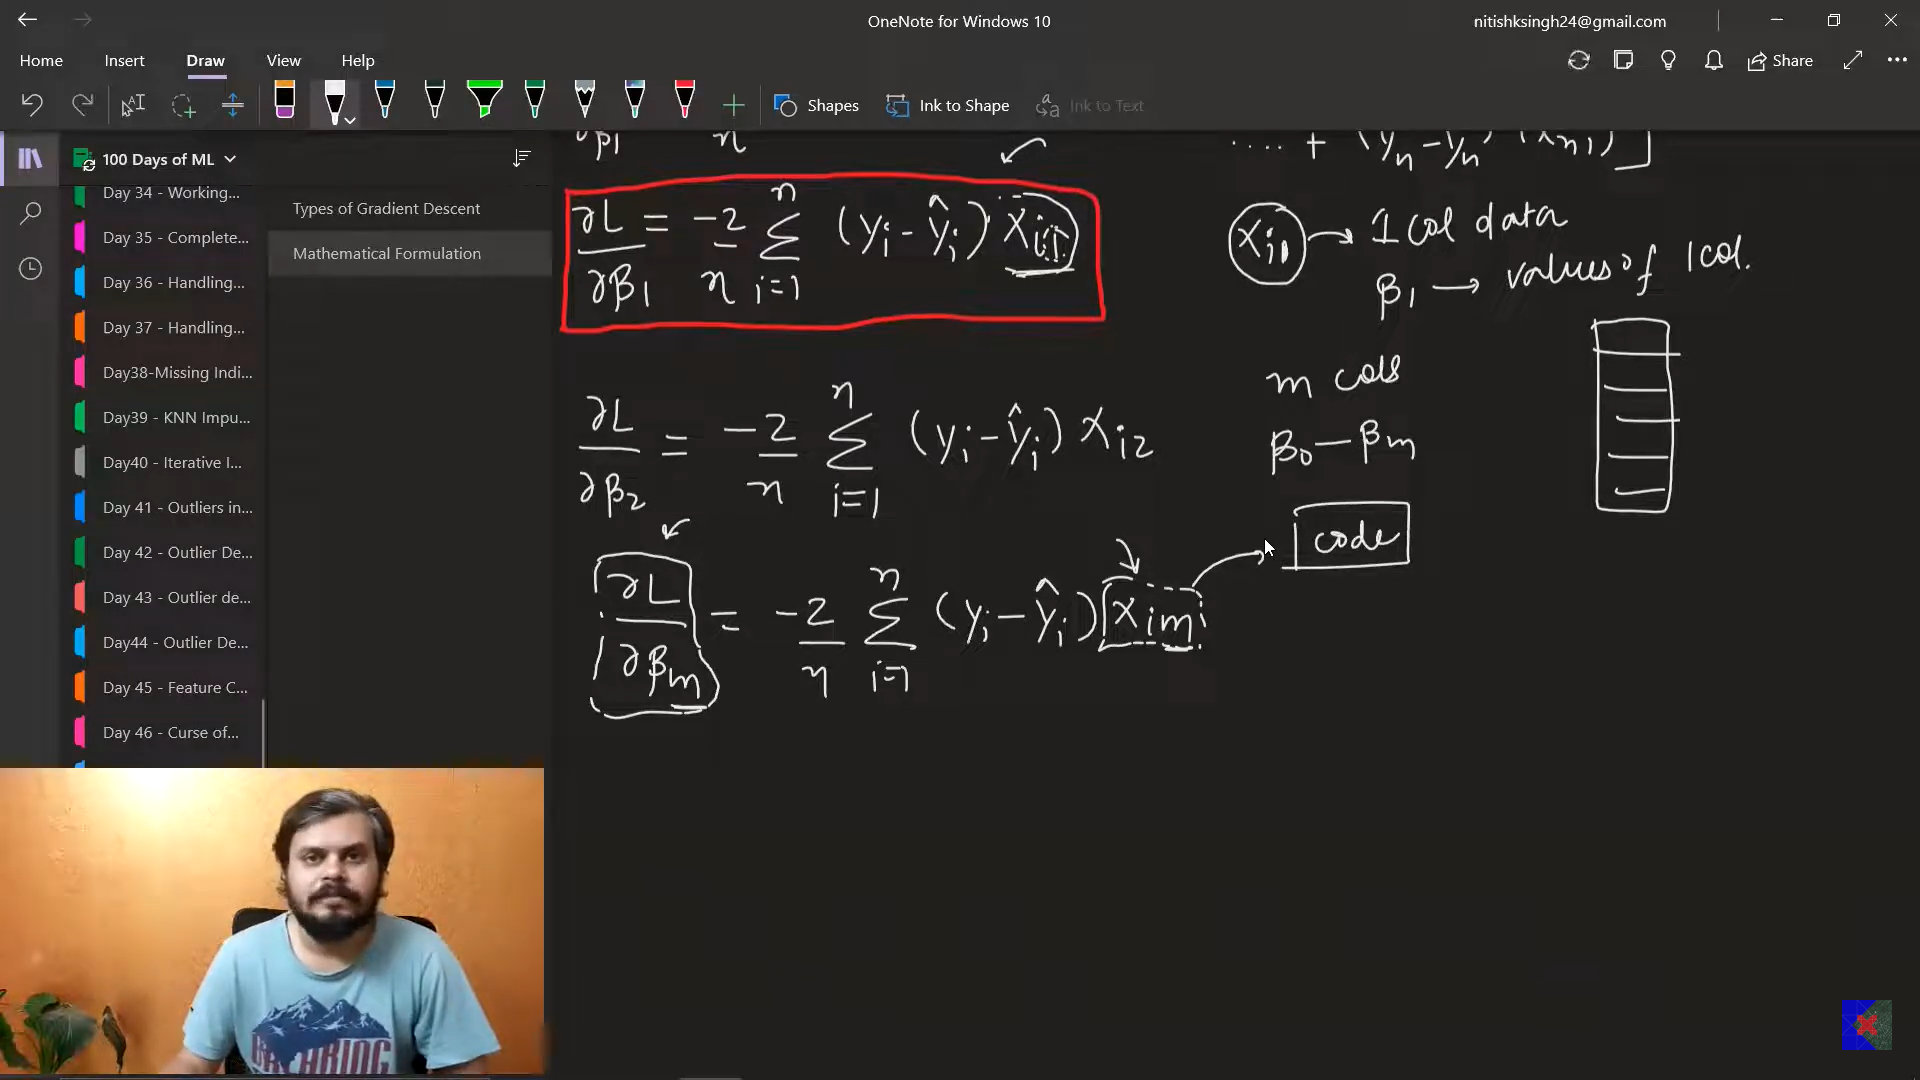 OneNote for Windows 10
nitishksingh24@gmail.com
Home Insert Draw View Help
Share
Shapes
Ink to Shape
Ink to Text
100 Days of ML
Day 34 - Working...
Day 35 - Complete...
Day 36 - Handling...
Day 37 - Handling...
Day38-Missing Indi...
Day39 - KNN Impu...
Day40 - Iterative I...
Day 41 - Outliers in...
Day 42 - Outlier De...
Day 43 - Outlier de...
Day44 - Outlier De...
Day 45 - Feature C...
Day 46 - Curse of...
Types of Gradient Descent
Mathematical Formulation
∂β₁ n
.... + (yₙ - ŷₙ) (xₙ₁)]
∂L/∂β₁ = -2/n Σ_{i=1}^{n} (yᵢ - ŷᵢ) Xᵢ₁
Xᵢ₁ → 1 col data
β₁ → values of 1 col.
m cols
β₀ — βₘ
∂L/∂β₂ = -2/n Σ_{i=1}^{n} (yᵢ - ŷᵢ) Xᵢ₂
code
∂L/∂βₘ = -2/n Σ_{i=1}^{n} (yᵢ - ŷᵢ) Xᵢₘ